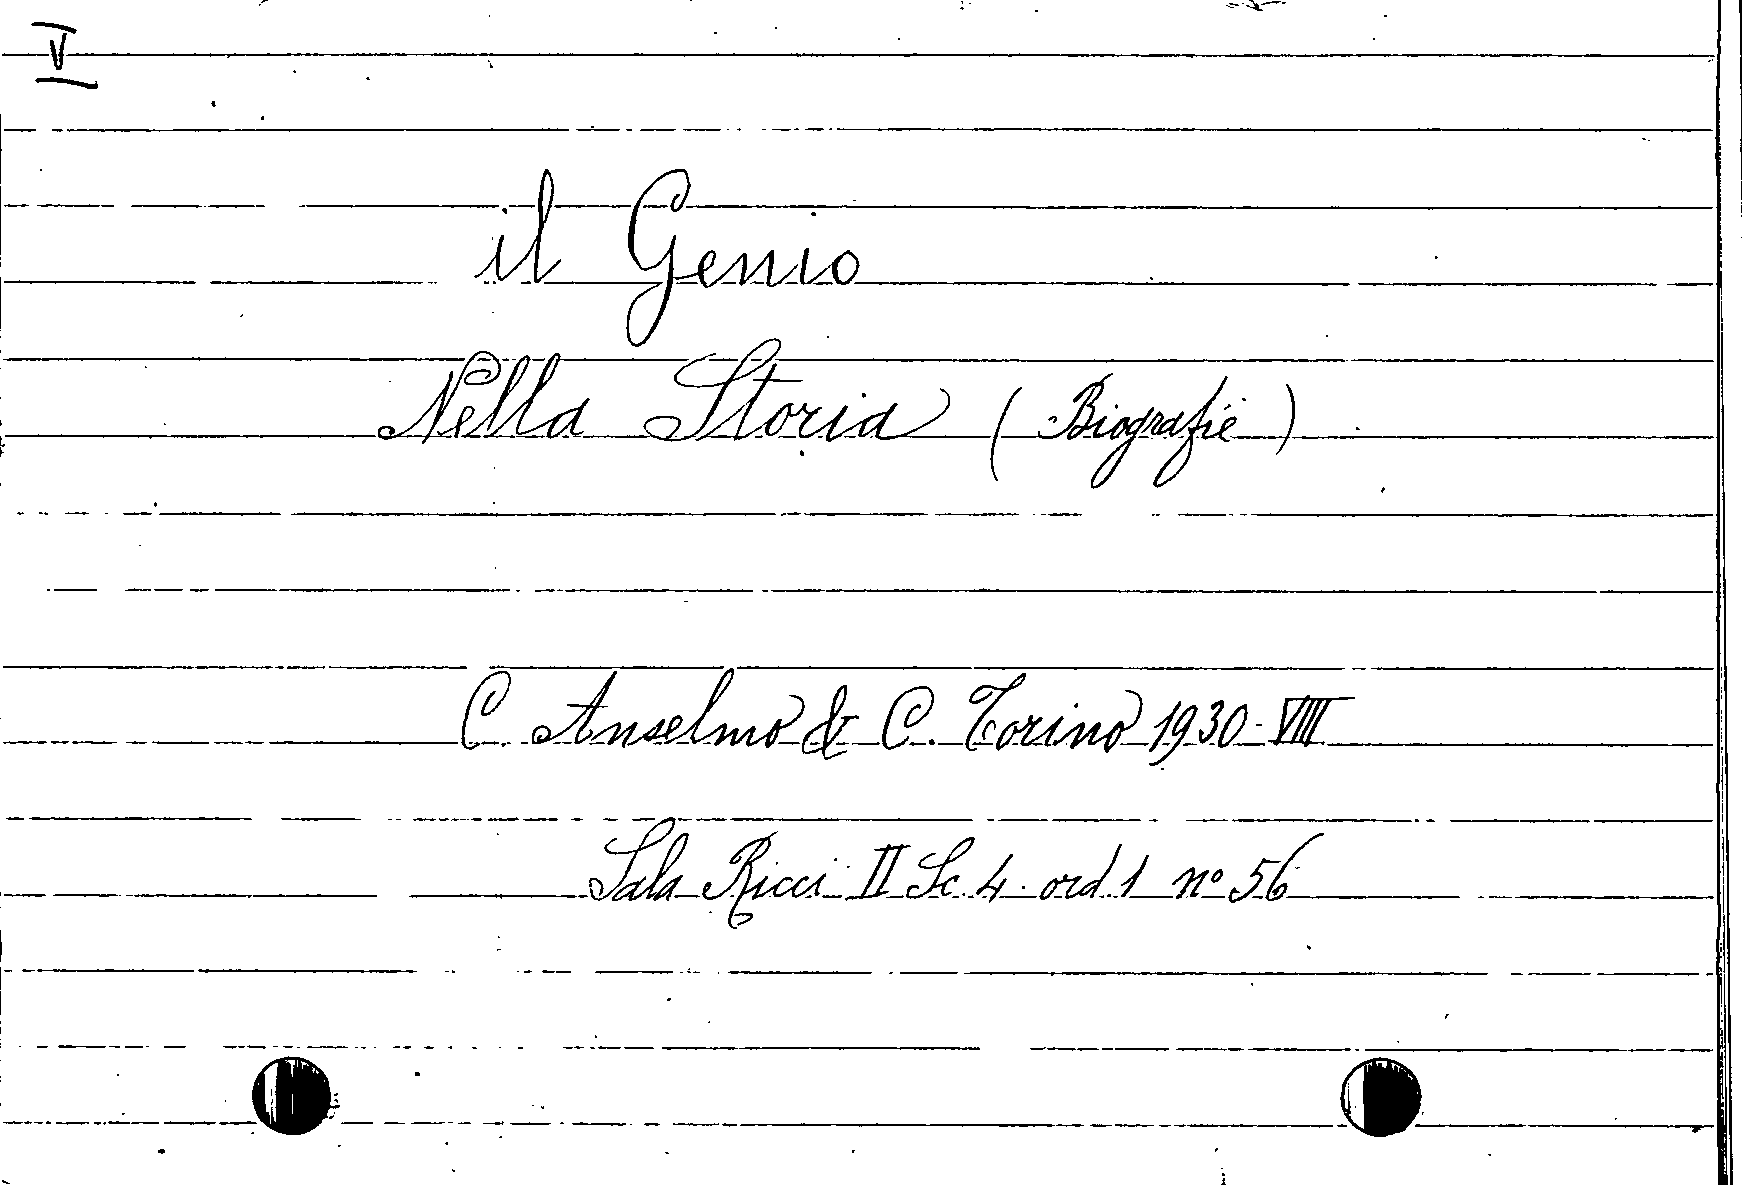 V
il Genio
Nella Storia (Biografie)
C. Anselmo & C. Torino 1930-VIII
Sala Ricci II Sc. 4. ord 1 nº 56